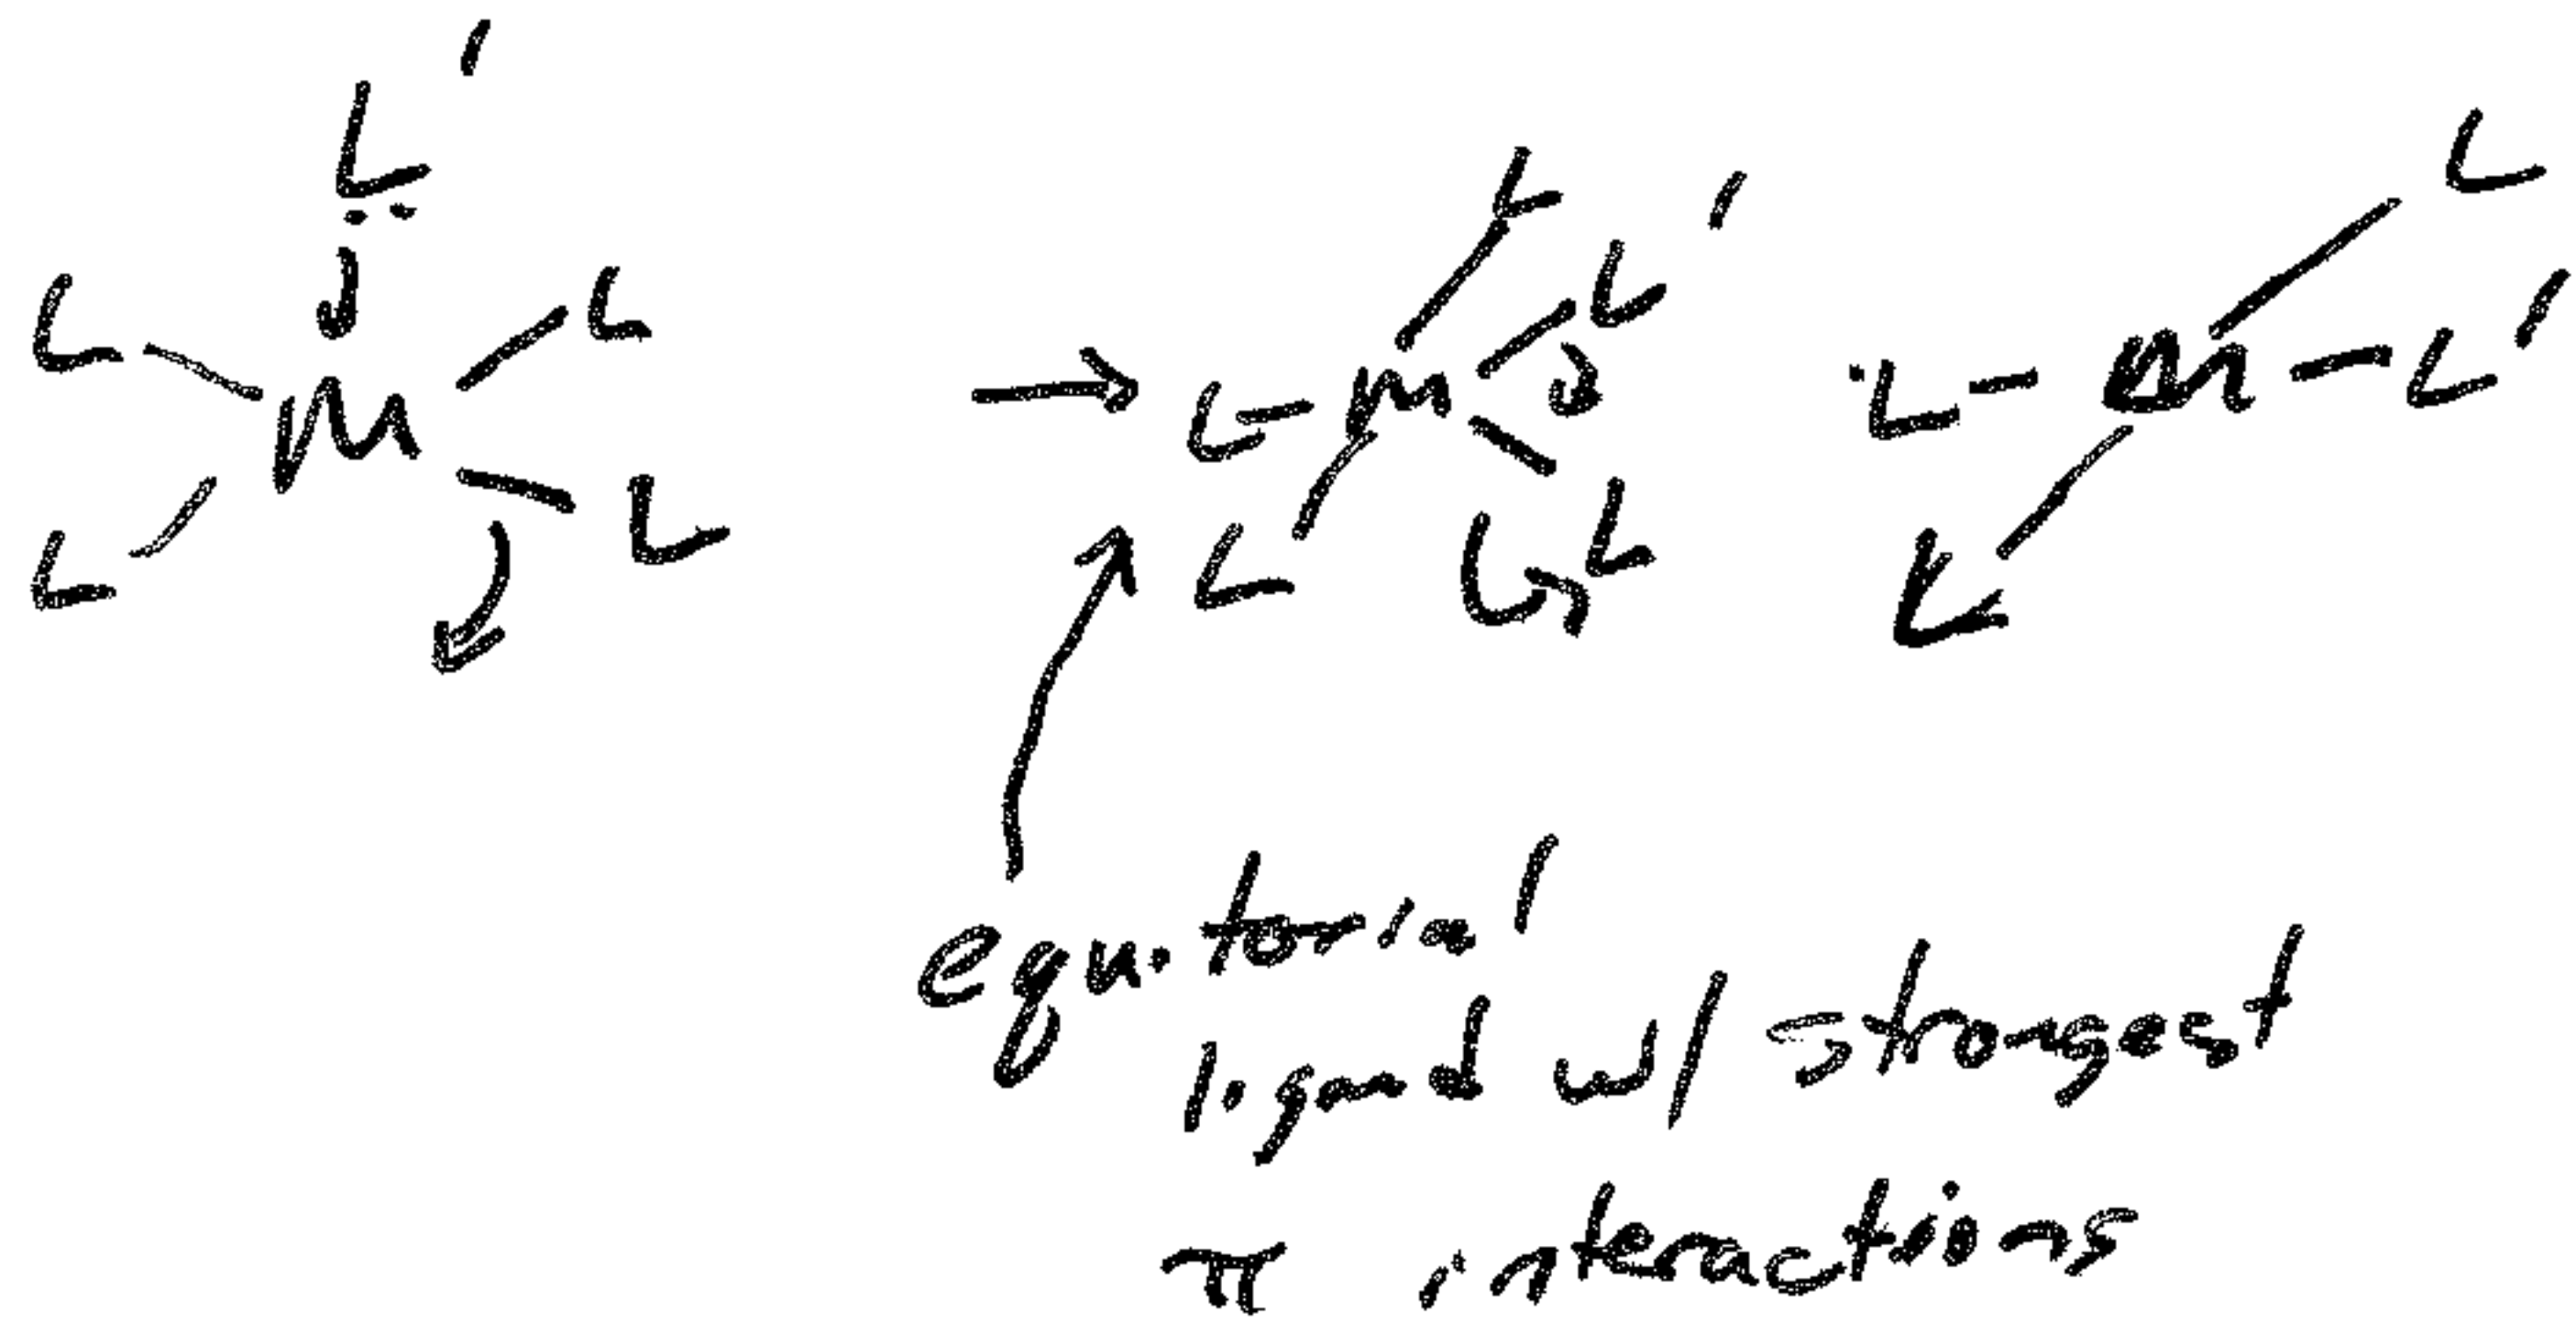 L'
L L L
L M L M L' L M L'
L L L L L
equitorial
ligand w/ strongest
π interactions